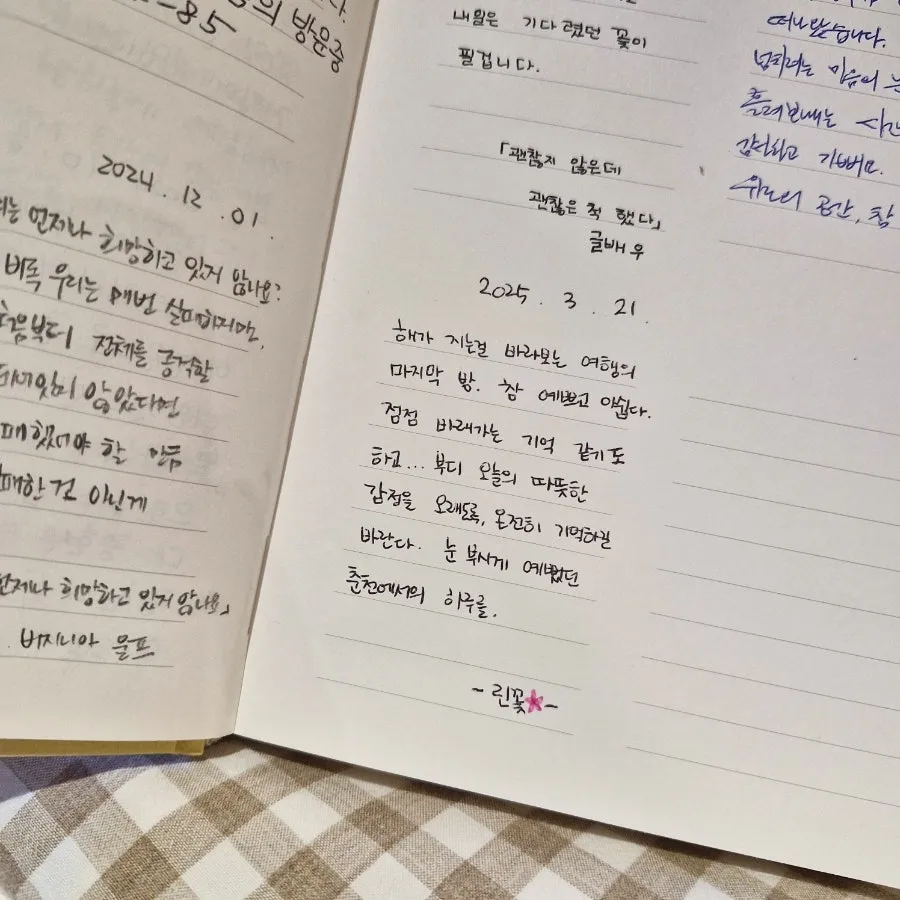 의 방문중
-85
2024 . 12 . 01 .
는 언제나 희망하고 있지 않나요?
비록 우리는 매번 실패하지만,
처음부터 전체를 공격할
있지 않았다면
패했어야 할 만큼
패한 건 아닌게
언제나 희망하고 있지 않나요」
버지니아 울프
내일은 기다렸던 꽃이
필겁니다.
「괜찮지 않은데
괜찮은 척 했다」
글배우
2025 . 3 . 21 .
해가 지는걸 바라보는 여행의
마지막 밤. 참 예쁘고 아쉽다.
점점 바래가는 기억 같기도
하고... 부디 오늘의 따뜻한
감정을 오래도록, 온전히 기억하길
바란다. 눈 부시게 예뻤던
춘천에서의 하루를.
- 린꽃 -
떠나왔습니다.
넘치려는 마음이
흘려보내는 시간
감사하고 기뻐요.
위로의 공간, 참